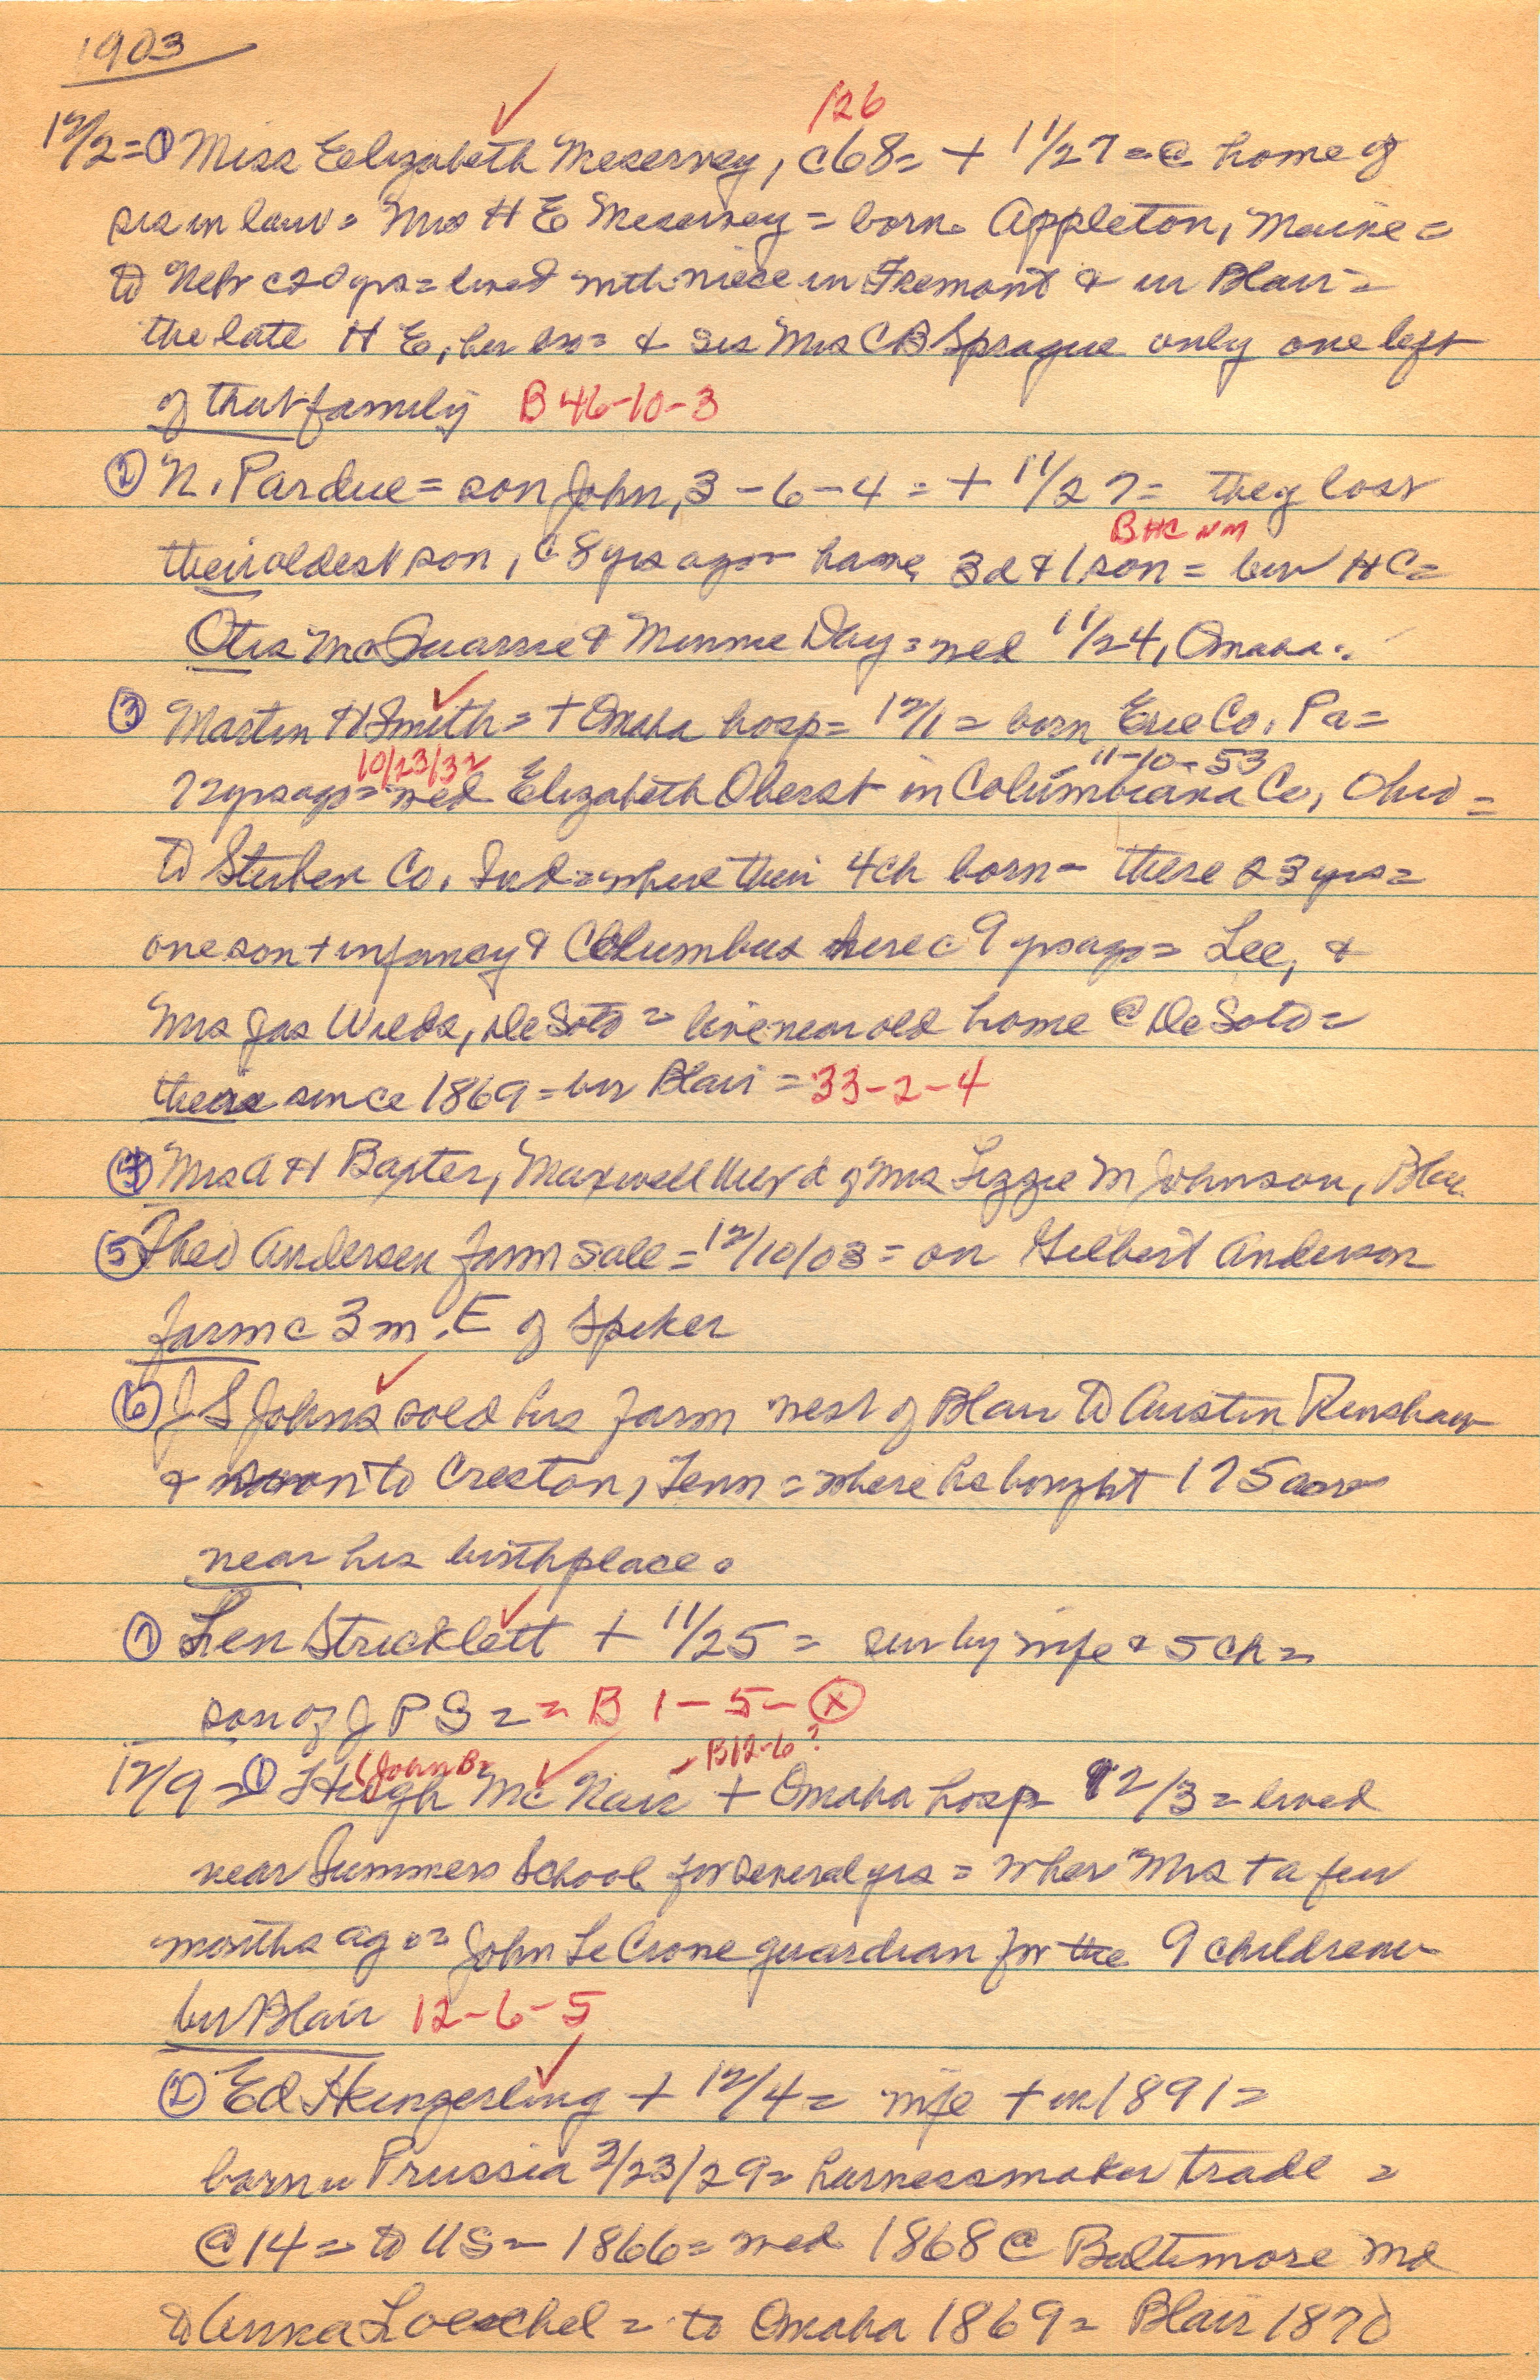 1903
126
12/2 = ① Miss Eelizabeth Meservey, c68 = + 11/27 = @ home of
sis in law = Mrs H E Meservey = born Appleton, Maine =
to Nebr c20 yrs = lived with niece in Fremont & in Blair =
the late H E, her bro = & sis Mrs CB Sprague only one left
of that family B 46-10-3
② N. Pardue = son John, 3-6-4 = + 11/27 = they lost
B HC NM
their oldest son, c 8 yrs ago = have 3d & 1 son = bur HC =
Otis McQuarrie & Minnie Day = wed 11/24, Omaha.
③ Martin H Smith = + Omaha hosp = 12/1 = born Erie Co, Pa =
10/23/32 11-10-53
72 yrs ago = wed Elizabeth Oberst in Columbiana Co, Ohio =
to Steuben Co, Ind = where their 4 ch born = there 23 yrs =
one son + infancy & Columbus here c 9 yrs ago = Lee, &
Mrs Jas Wilds, DeSoto = live near old home @ DeSoto =
there since 1869 = bur Blair = 33-2-4
④ Mrs A H Baxter, Maxwell d of Mrs Lizzie M Johnson, Blair
⑤ Theo Andersen farm sale = 12/10/03 = on Gilbert Anderson
farm c 3 m. E of Spiker
⑥ J S Johns sold his farm west of Blair to Austin Renshaw
& to Creston, Tenn = where he bought 175 acres
near his birthplace.
⑦ Len Stricklett + 11/25 = sur by wife & 5 ch =
son of J P S = = B 1-5-ⓧ
(John B = - B12-6?
12/9 = ① Hugh McNair + Omaha hosp 12/3 = lived
near Summers School for several yrs = wher Mrs + a few
months ago = John LeCrone guardian for the 9 children =
bur Blair 12-6-5
② Ed Hengerling + 12/4 = wife + in 1891 =
born in Prussia 3/23/29 = harnessmaker trade =
@ 14 = to US = 1866 = wed 1868 @ Baltimore Md
to Anna Loechel = to Omaha 1869 = Blair 1870